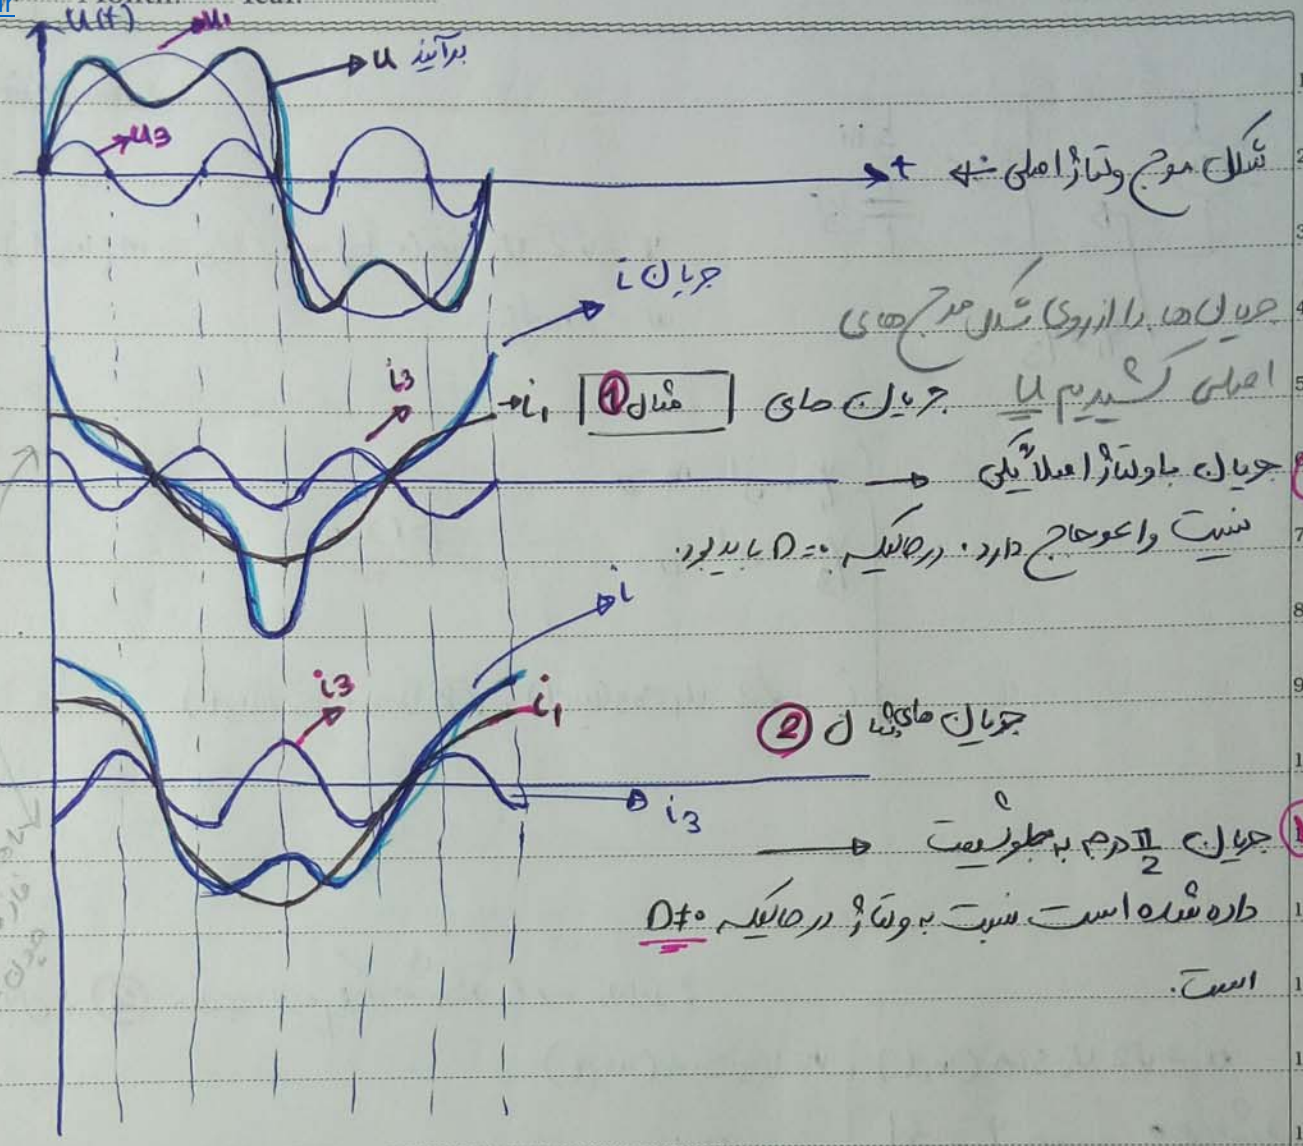 Month: Year:
u(t)
u₁
برآیند u
u3
t
شکل موج ولتاژ اصلی
جریان i
جریان ها را از روی شکل موج های
اصلی u کشیدیم
i3
i₁
جریان های مثال ①
جریان با ولتاژ اصلا یکی
نیست و اعوجاج دارد. درحالیکه D=0 باید بود.
i
i3
i₁
جریان های مثال ②
i3
جریان π/2 درجه به جلو شیفت
داده شده است نسبت به ولتاژ درحالیکه D≠0
است.